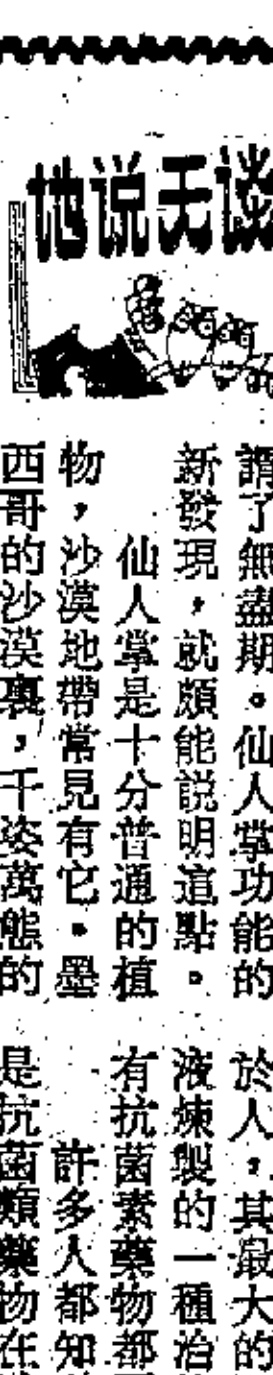 谈天说地
謂了無盡期。仙人掌功能的
新發現，就頗能説明這點。
仙人掌是十分普通的植
物，沙漠地帶常見有它。墨
西哥的沙漠裏，千姿萬態的
於人，其最大的
液煉製的一種治
有抗菌素藥物都
許多人都知
是抗菌類藥物在